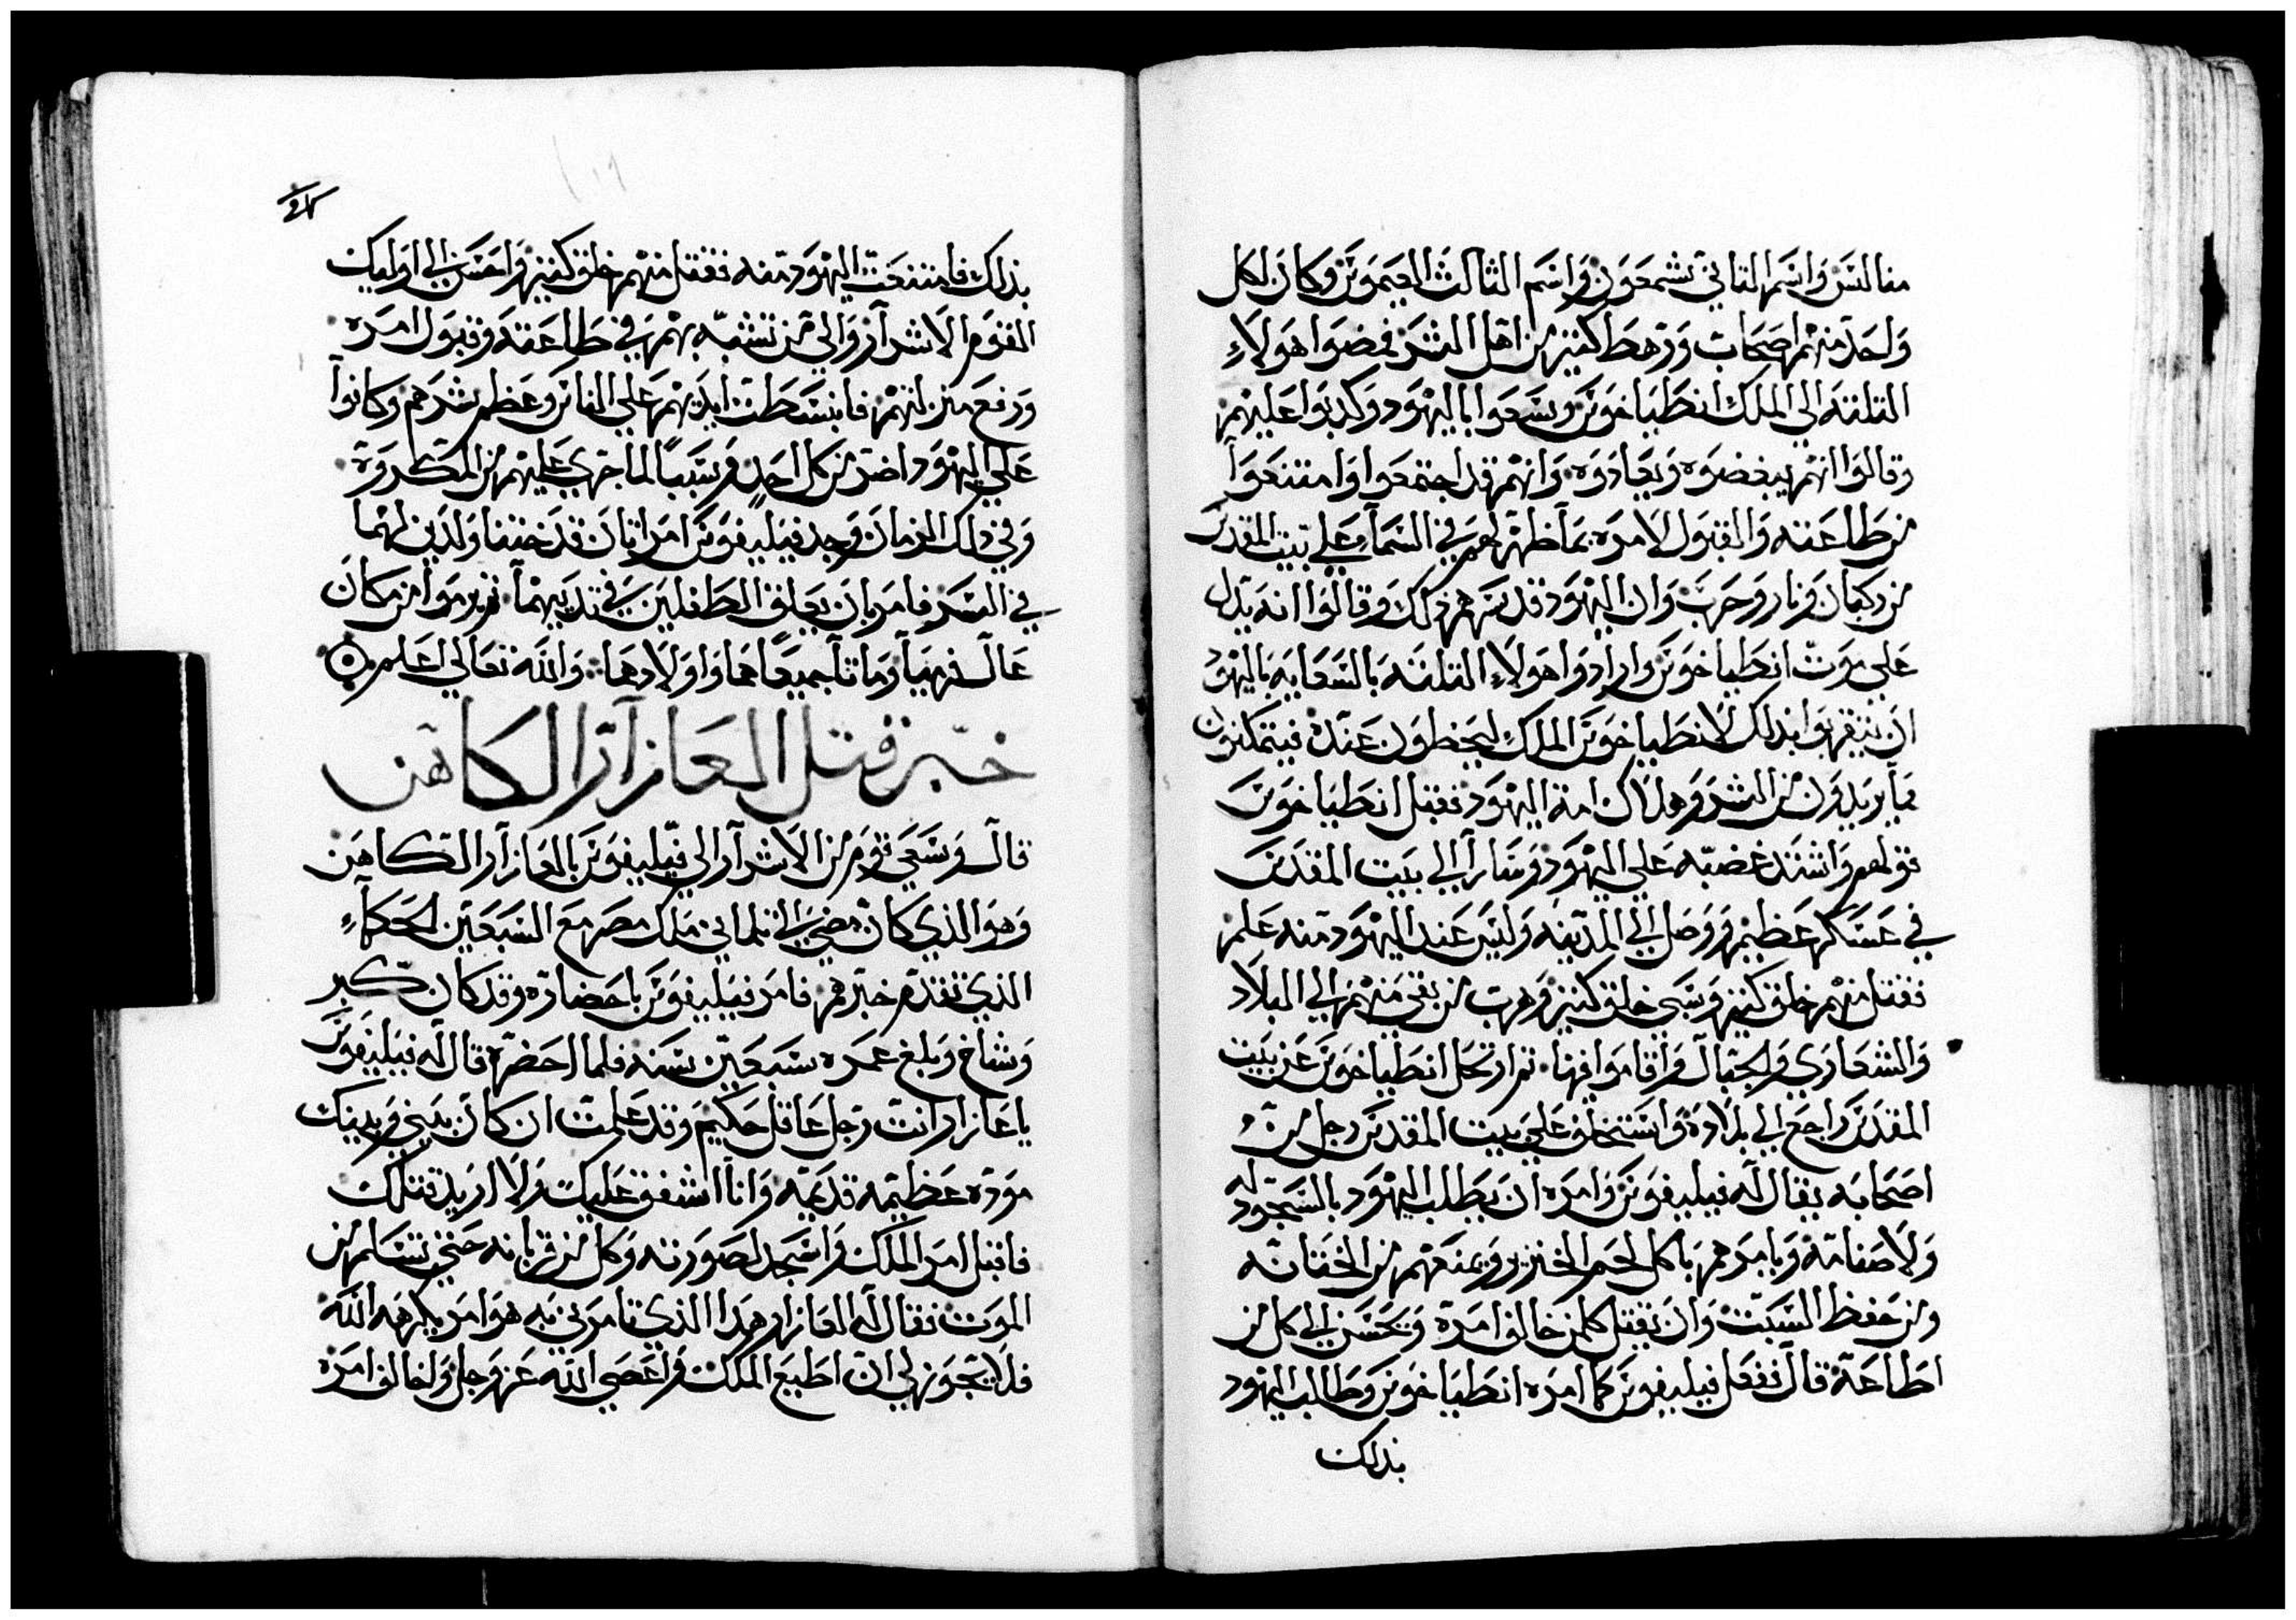 منالتس واسم الثاني شمعون واسم الثالث العيموس وكان لكل
واحد منهم اصحاب ورهط كثير من اهل الشر فمضوا هولاء
الثلثه الي الملك انطياخوس وسعوا باليهود وكدبوا عليهم
وقالوا انهم يبغضوه ويعادوه وانهم قد اجتمعوا وامتنعوا
من طاعته والقبول لامره بما ظهر لهم في السماء علي بيت المقدس
من ركبان ونار وحرب وان اليهود قد سرهم ذلك وقالوا انه يدل
علي موت انطياخوس وارادوا هولاء الثلثه بالسعايه باليهود
ان يتقربوا بذلك لانطياخوس الملك ليحظون عنده فيتمكنون
بما يريدون من الشر وهلاك امة اليهود فقبل انطياخوس
قولهم واشتد غضبه علي اليهود وسار الي بيت المقدس
في عسكر عظيم ووصل الي المدينه وليس عند اليهود منه علم
فقتل منهم خلق كثير وسبي خلق كثير وهرب من بقي منهم الي البلاد
والشعاري والجبال واقاموا فيها ثم ارتحل انطياخوس عن بيت
المقدس راجع الي بلاده واستخلف علي بيت المقدس رجل من
اصحابه يقال له فيليفوس وامره ان يطلب اليهود بالسجود له
ولاصنامه ويامرهم باكل لحم الخنزير ويمنعهم من الختانه
ومن حفظ السبت وان يقتل كلمن خالف امره ويحسن الي كل من
اطاعه قال ففعل فيليفوس كما امره انطياخوس وطالب اليهود
بذلك
بذلك فامتنعت اليهود منه فقتل منهم خلق كثير واحسن الي اوليك
القوم الاشرار والي من تشبه بهم في طاعته وقبول امره
ورفع منزلتهم فانبسطت ايديهم علي الناس وعظم شرهم وكانوا
علي اليهود اضر من كل احد وسببا لما جري عليهم من المكروه
وفي ذلك الزمان وجد فيليفوس امراتان قد ختنا ولدين لهما
في السر فامر بان يعلق الطفلين في ثدييهما ثم يرموا من مكان
عال فرميا وماتا جميعا هما واولادهما والله تعالي اعلم
خبر قتل العازار الكاهن
قال وسعي قوم من الاشرار الي فيليفوس بالعازار الكاهن
وهو الذي كان مضي الي تلماني ملك مصر مع السبعين الحكماء
الذي تقدم خبرهم فامر فيليفوس باحضاره وقد كان كبر
وشاخ وبلغ عمره سبعين سنه فلما احضره قال له فيليفوس
يا عازار انت رجل عاقل حكيم وقد علمت ان كان بيني وبينك
موده عظيمه قديمه وانا اشفق عليك ولا اريد قتلك
فاقبل امر الملك واسجد لصورته وكل من قربانه حتي تسلم من
الموت فقال له العازار هدا الذي تامرني به هو امر يكرهه الله
فلا يجوز لي ان اطيع الملك واعصي الله عز وجل ولخالف امره